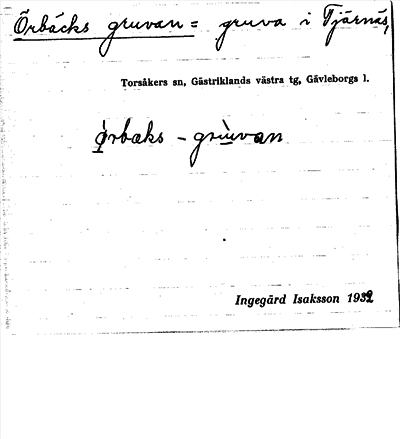 Örbäcks gruvan = gruva i Tjärnäs,
Torsåkers sn, Gästriklands västra tg, Gävleborgs l.
ø̀rbaks - grùvan
Ingegärd Isaksson 1932